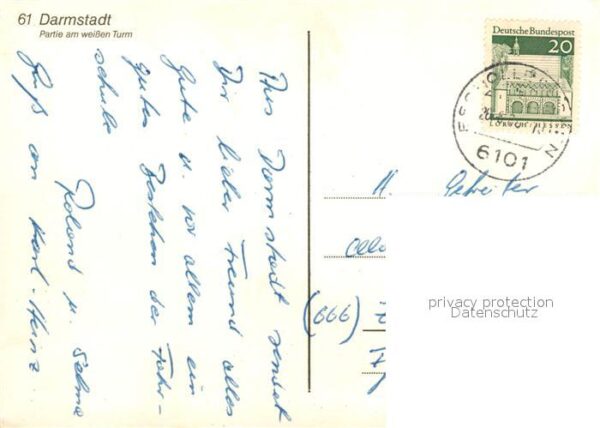 61 Darmstadt
Partie am weißen Turm
Aus Darmstadt sendet
Dir lieber Freund alles
Gute u. vor allem ein
gutes Bestehen der Fahr-
schule
Roland u. Selma
Gruß an Karl-Heinz
Deutsche Bundespost
20
LORSCH/HESSEN
6101
H.
(666)
privacy protection
Datenschutz